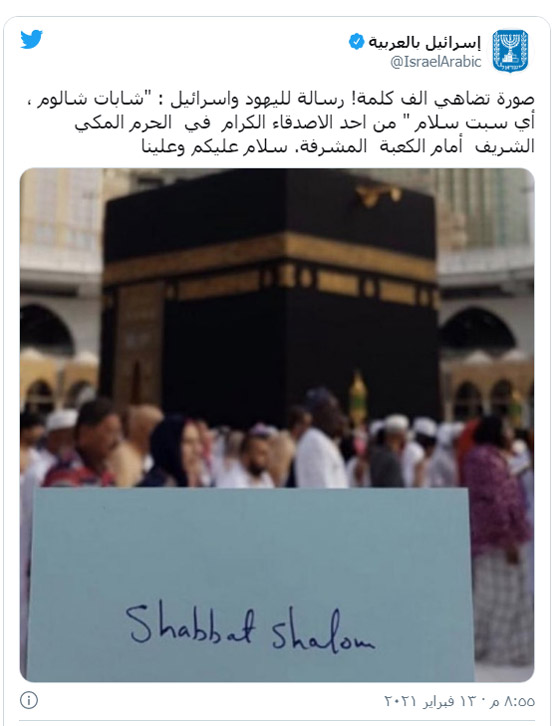 إسرائيل بالعربية
@IsraelArabic
صورة تضاهي الف كلمة! رسالة لليهود واسرائيل : "شابات شالوم ،
أي سبت سلام " من احد الاصدقاء الكرام في الحرم المكي
الشريف أمام الكعبة المشرفة. سلام عليكم وعلينا
Shabbat Shalom
٨:٥٥ م · ١٣ فبراير ٢٠٢١